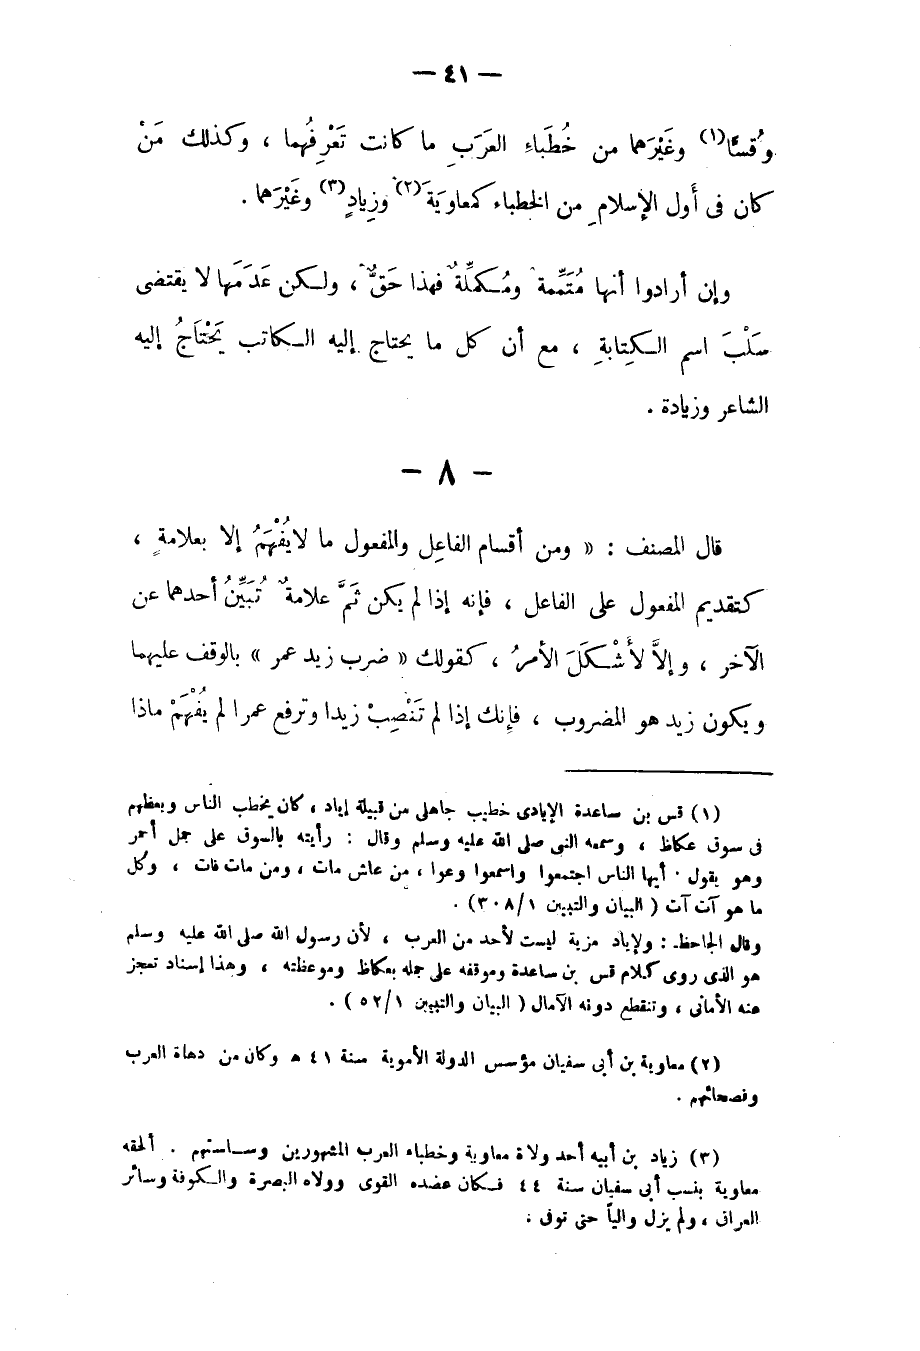 — ٤١ —
وقُسًّا(١) وغَيْرَهما من خُطَباءِ العَرَبِ ما كانت تَعْرِفُهما ، وكذلك مَنْ
كان فى أول الإسلام من الخطباء كمعاويَةَ(٢) وزِيادٍ(٣) وغَيْرَهما .
وإن أرادوا أنها مُتَمِّمة ومُكمِّلةٌ فهذا حَقٌّ ، ولكن عَدَمَها لا يقتضى
سَلْبَ اسم الكِتابةِ ، مع أن كل ما يحتاج إليه الكاتب يَحْتَاجُ إليه
الشاعر وزيادة .
— ٨ —
قال المصنف : « ومن أقسام الفاعِل والمفعول ما لا يُفْهَمُ إلا بعلامةٍ ،
كتقديم المفعول على الفاعل ، فإنه إذا لم يكن ثَمَّ علامةٌ تُبَيِّنُ أحدهما عن
الآخر ، وإلاَّ لأَشْكَلَ الأمرُ ، كقولك « ضرب زيد عمر » بالوقف عليهما
ويكون زيد هو المضروب ، فإنك إذا لم تَنْصِبْ زيدا وترفع عمرا لم يُفْهَمْ ماذا
(١) قس بن ساعدة الإيادى خطيب جاهلى من قبيلة إياد ، كان يخطب الناس ويعظهم
فى سوق عكاظ ، وسمعه النبى صلى الله عليه وسلم وقال : رأيته بالسوق على جمل أحمر
وهو يقول . أيها الناس اجتمعوا واسمعوا وعوا ، من عاش مات ، ومن مات فات ، وكل
ما هو آت آت ( البيان والتبيين ٣٠٨/١) .
وقال الجاحظ : ولإياد مزية ليست لأحد من العرب ، لأن رسول الله صلى الله عليه وسلم
هو الذى روى كلام قس بن ساعدة وموقفه على جمله بعكاظ وموعظته ، وهذا إسناد تعجز
عنه الأمانى ، وتنقطع دونه الآمال ( البيان والتبيين ٥٢/١ ) .
(٢) معاوية بن أبى سفيان مؤسس الدولة الأموية سنة ٤١ هـ وكان من دهاة العرب
وفصحائهم .
(٣) زياد بن أبيه أحد ولاة معاوية وخطباء العرب المشهورين وساستهم . ألحقه
معاوية بنسب أبى سفيان سنة ٤٤ فكان عضده القوى وولاه البصرة والكوفة وسائر
العراق ، ولم يزل والياً حتى توفى .